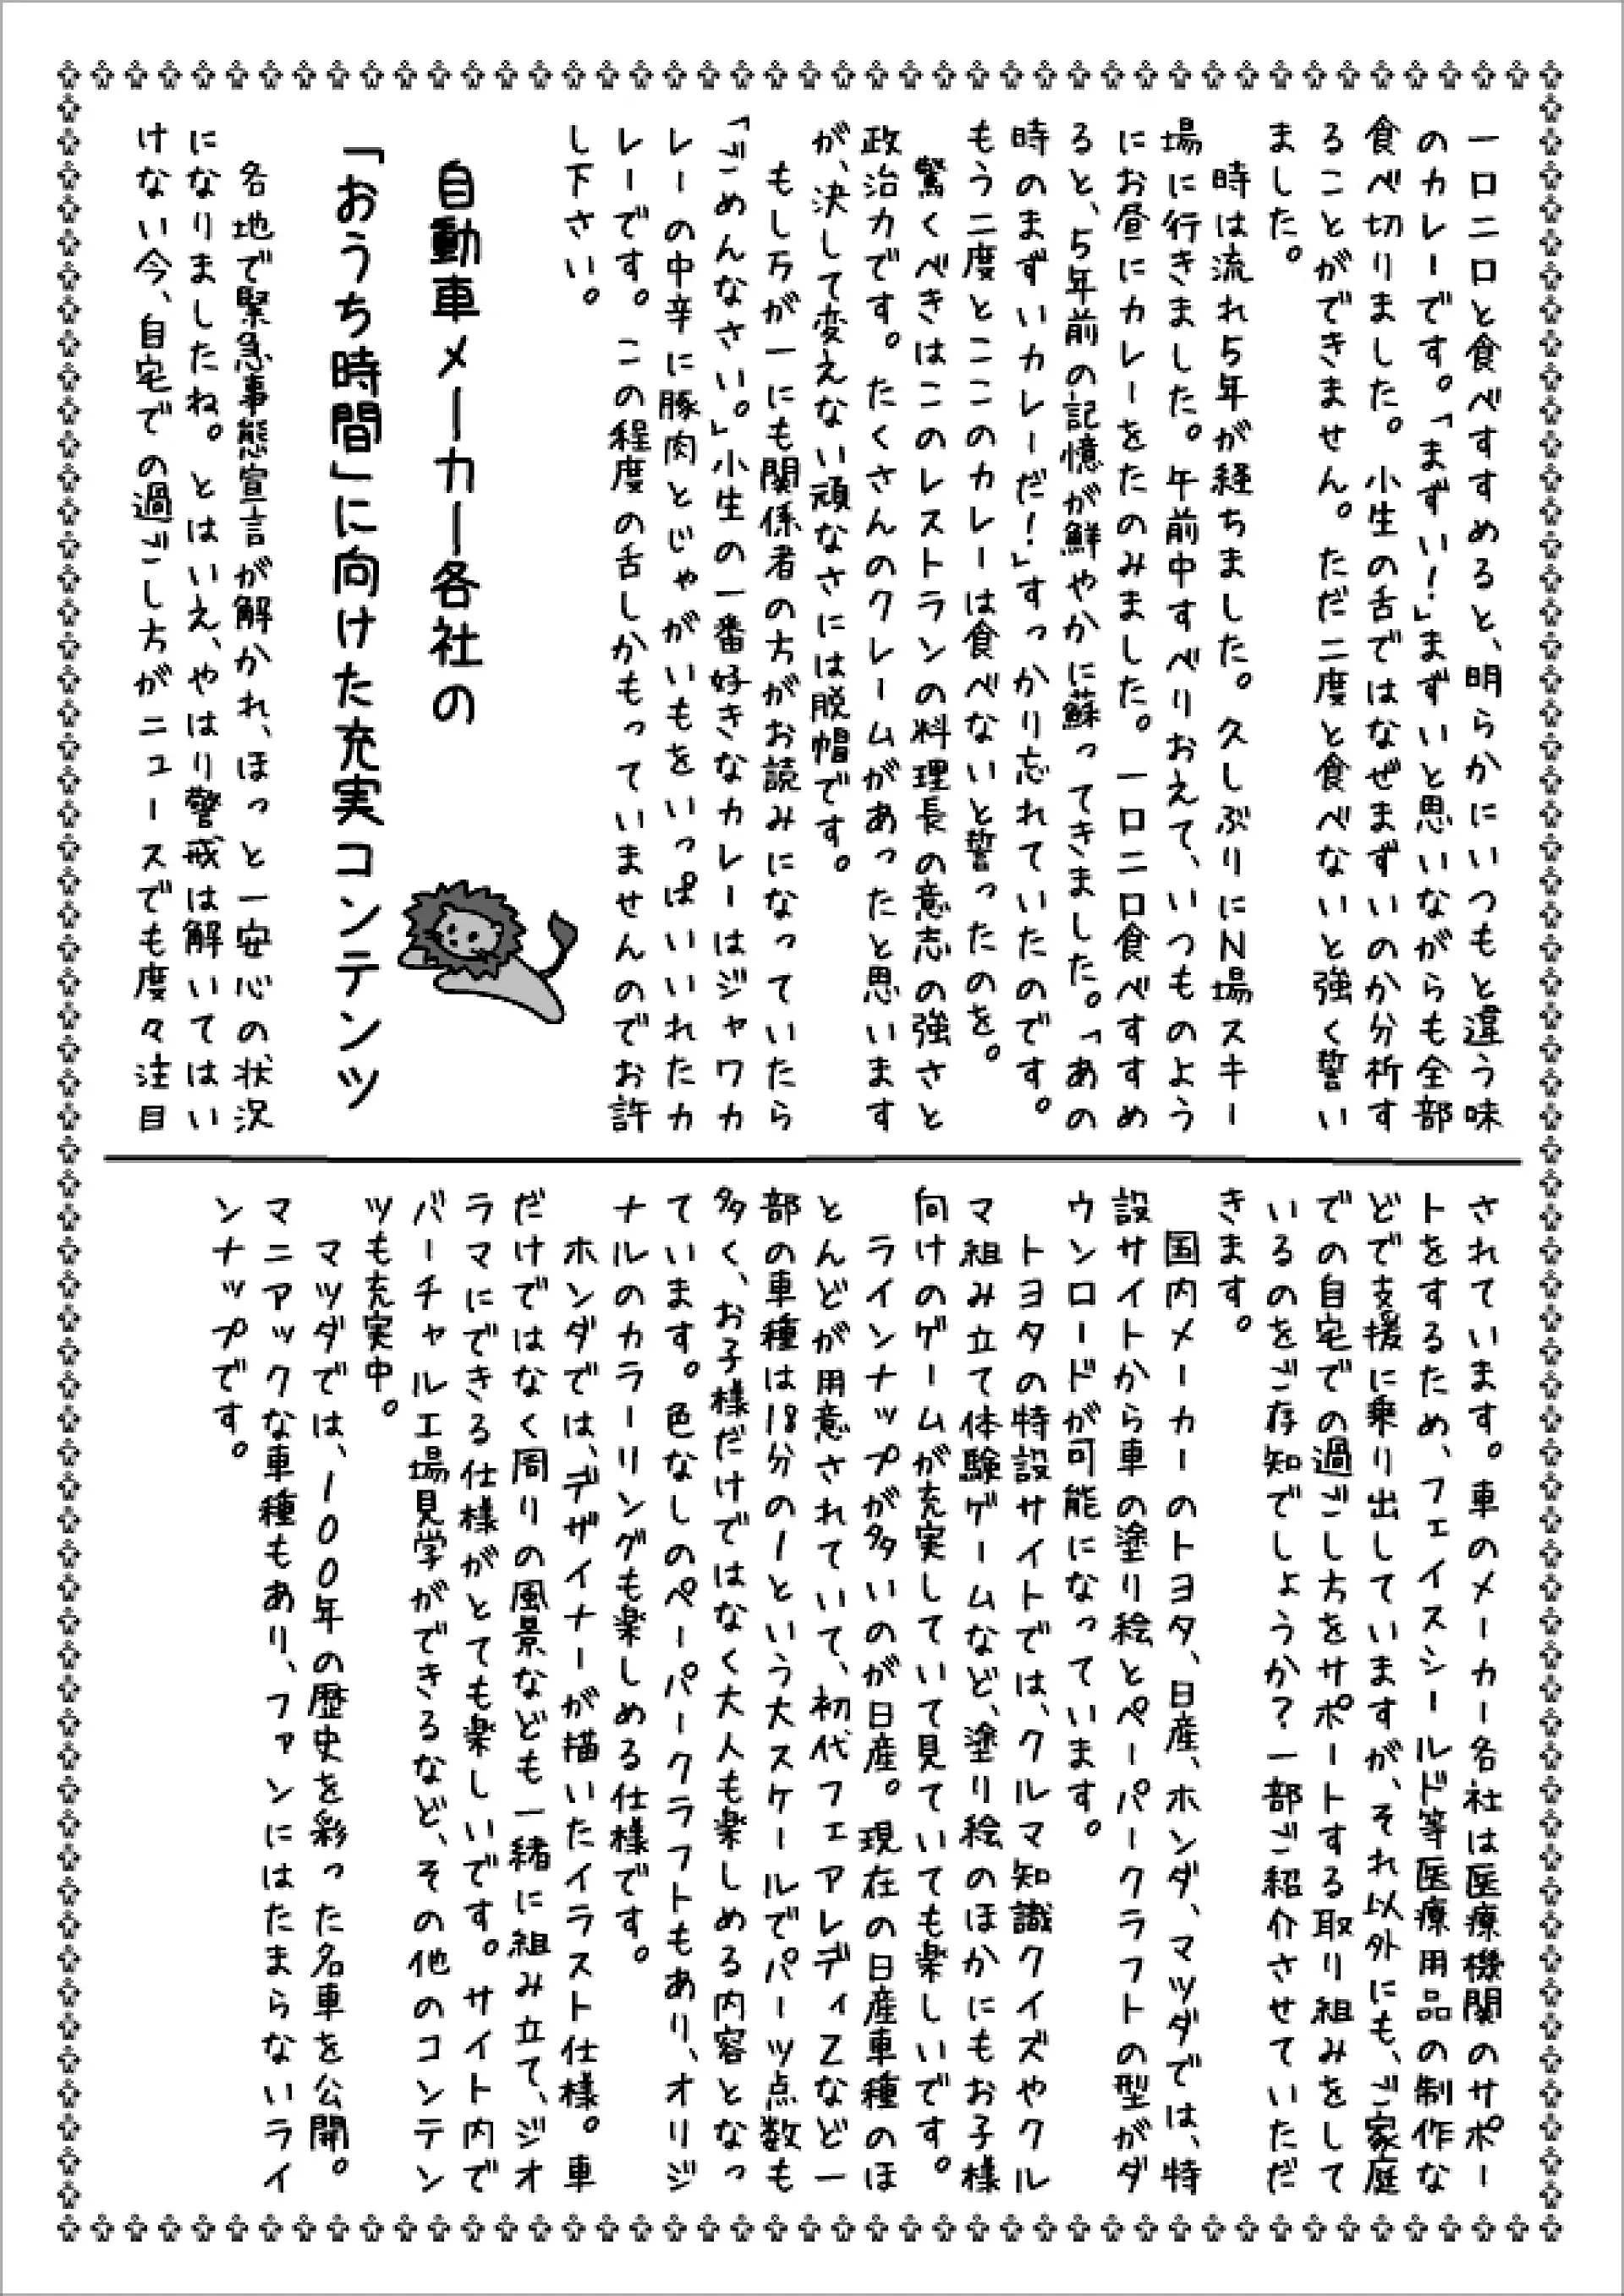 一口二口と食べすすめると、明らかにいつもと違う味
のカレーです。「まずい！」まずいと思いながらも全部
食べ切りました。小生の舌ではなぜまずいのか分析す
ることができません。ただ二度と食べないと強く誓い
ました。
時は流れ５年が経ちました。久しぶりにＮ場スキー
場に行きました。午前中すべりおえて、いつものよう
にお昼にカレーをたのみました。一口二口食べすすめ
ると、５年前の記憶が鮮やかに蘇ってきました。「あの
時のまずいカレーだ！」すっかり忘れていたのです。
もう二度とここのカレーは食べないと誓ったのを。
驚くべきはこのレストランの料理長の意志の強さと
政治力です。たくさんのクレームがあったと思います
が、決して変えない頑なさには脱帽です。
もし万が一にも関係者の方がお読みになっていたら
「ごめんなさい。」小生の一番好きなカレーはジャワカ
レーの中辛に豚肉とじゃがいもをいっぱいいれたカ
レーです。この程度の舌しかもっていませんのでお許
し下さい。
自動車メーカー各社の
「おうち時間」に向けた充実コンテンツ
各地で緊急事態宣言が解かれ、ほっと一安心の状況
になりましたね。とはいえ、やはり警戒は解いてはい
けない今、自宅での過ごし方がニュースでも度々注目
されています。車のメーカー各社は医療機関のサポー
トをするため、フェイスシールド等医療用品の制作な
どで支援に乗り出していますが、それ以外にも、ご家庭
での自宅での過ごし方をサポートする取り組みをして
いるのをご存知でしょうか？一部ご紹介させていただ
きます。
国内メーカーのトヨタ、日産、ホンダ、マツダでは、特
設サイトから車の塗り絵とペーパークラフトの型がダ
ウンロードが可能になっています。
トヨタの特設サイトでは、クルマ知識クイズやクル
マ組み立て体験ゲームなど、塗り絵のほかにもお子様
向けのゲームが充実していて見ていても楽しいです。
ラインナップが多いのが日産。現在の日産車種のほ
とんどが用意されていて、初代フェアレディＺなど一
部の車種は１８分の１という大スケールでパーツ点数も
多く、お子様だけではなく大人も楽しめる内容となっ
ています。色なしのペーパークラフトもあり、オリジ
ナルのカラーリングも楽しめる仕様です。
ホンダでは、デザイナーが描いたイラスト仕様。車
だけではなく周りの風景なども一緒に組み立て、ジオ
ラマにできる仕様がとても楽しいです。サイト内で
バーチャル工場見学ができるなど、その他のコンテン
ツも充実中。
マツダでは、１００年の歴史を彩った名車を公開。
マニアックな車種もあり、ファンにはたまらないライ
ンナップです。